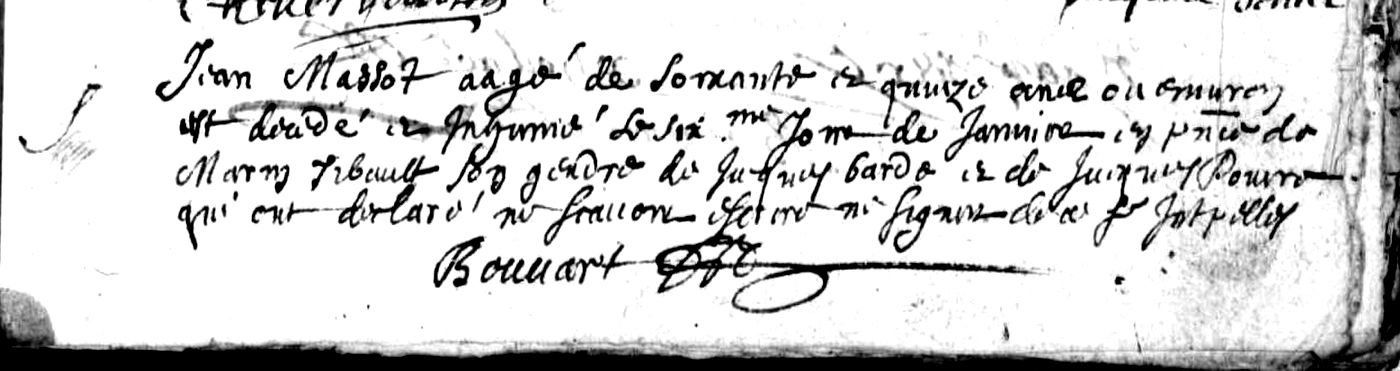 Jean Massot aagé de soixante et quinze ans ou environ
est decedé et Inhumé le six.me Jour de Janvier en pnce de
Marin Tibault son gendre de Jacques barde et de Jacques Poivre
qui ont declaré ne scavoir escrire ne signer de ce Intpellés
Bouuart